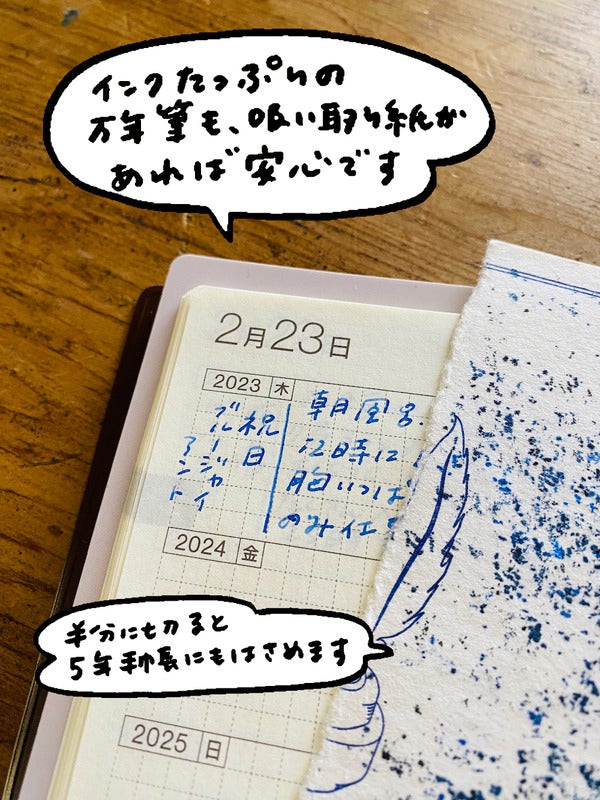 インクたっぷりの
万年筆も、吸い取り紙が
あれば安心です
2月23日
2023 木
祝日
ブルージャイ
アント
朝風呂
12時に
胸いっぱ
のみ仕
2024 金
半分にも切ると
5年手帳にもはさめます
2025 日